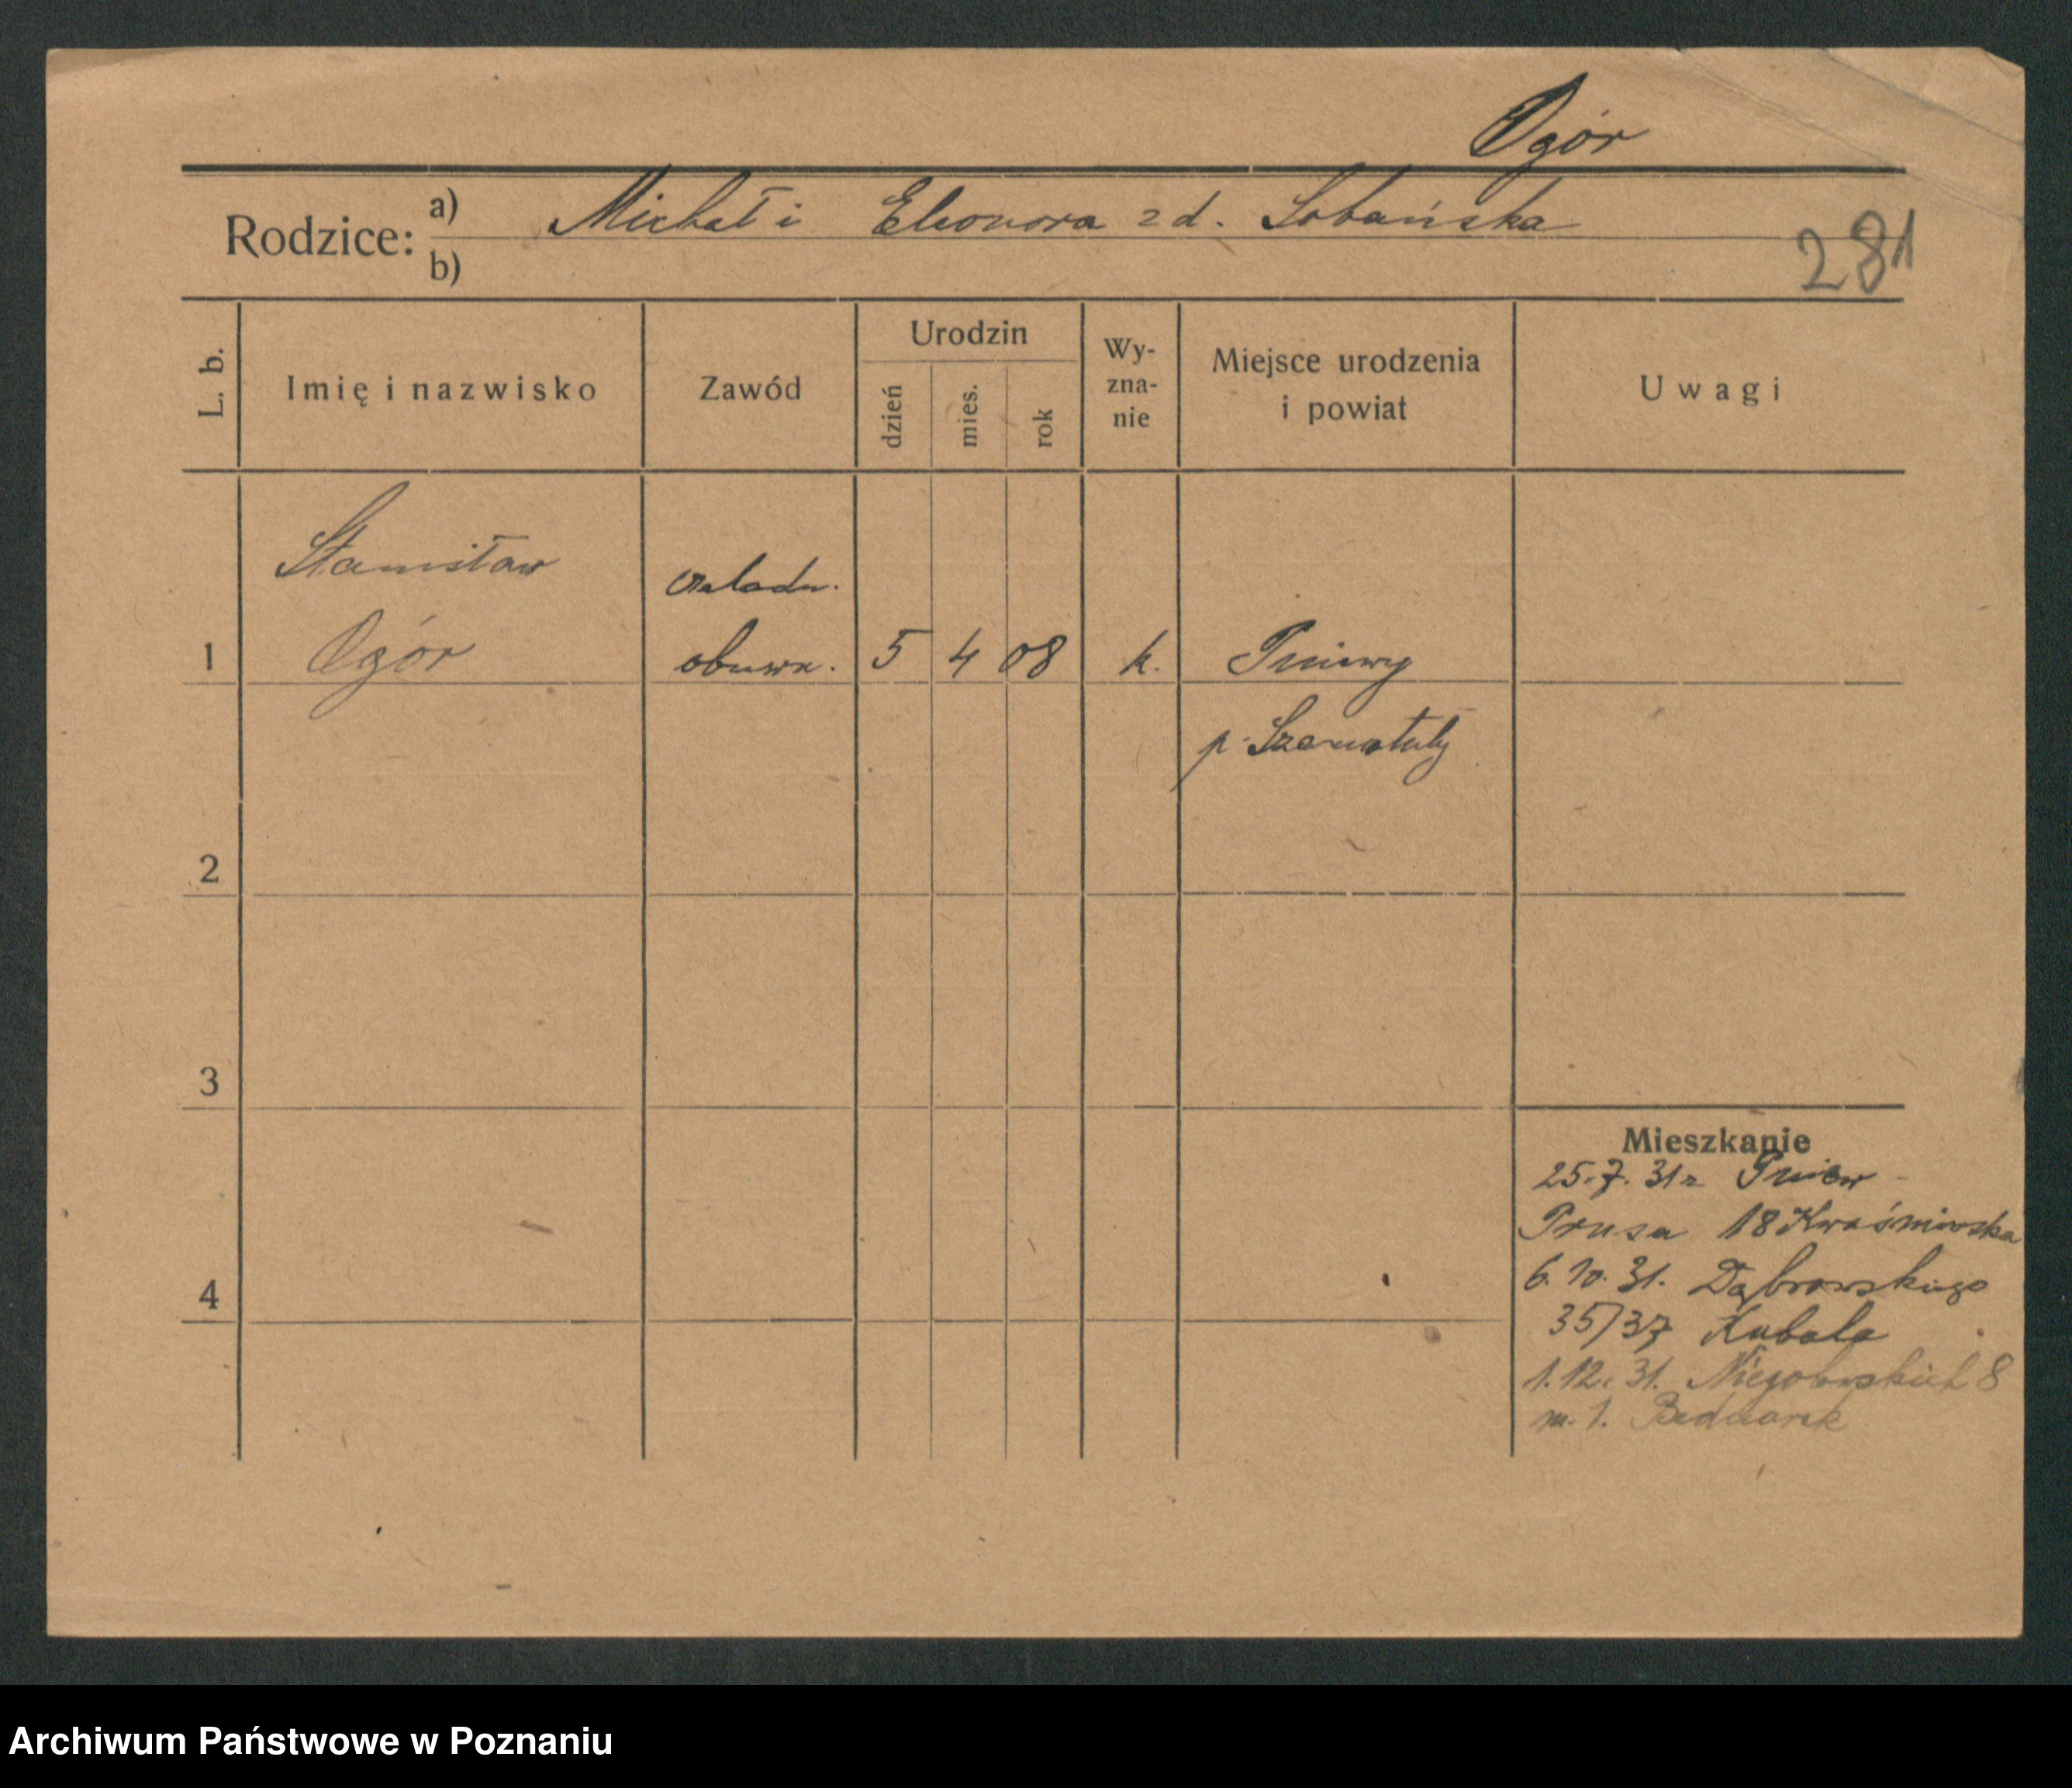 Ogór
Rodzice: a) Michał i Eleonora z d. Łobańska
b)
281
L. b.
Imię i nazwisko
Zawód
Urodzin
dzień
mies.
rok
Wy-
zna-
nie
Miejsce urodzenia
i powiat
Uwagi
Stanisław
czeladn.
1 Ogór obuwn. 5 4 08 k. Pniewy
p. Szamotuły
2
3
4
Mieszkanie
25.7.31 r Pniew
Prusa 18 Kwaśniewska
6.10.31. Dąbrowskiego
35/37 Kubala
1.12.31. Niegolewskich 8
m. 1. Bednarek
Archiwum Państwowe w Poznaniu